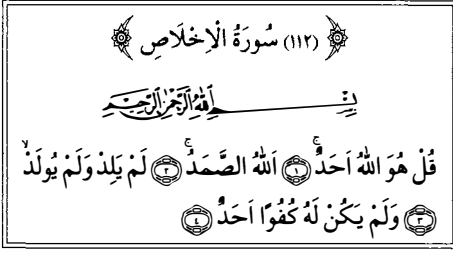 ﴿ (١١٢) سُورَةُ الْاِخْلَاصِ ﴾
بِسْمِ اللهِ الرَّحْمٰنِ الرَّحِيْمِ
قُلْ هُوَ اللهُ اَحَدٌۚ ﴿١﴾ اَللهُ الصَّمَدُۚ ﴿٢﴾ لَمْ يَلِدْ وَلَمْ يُولَدْۙ
﴿٣﴾ وَلَمْ يَكُنْ لَهُ كُفُوًا اَحَدٌ ﴿٤﴾